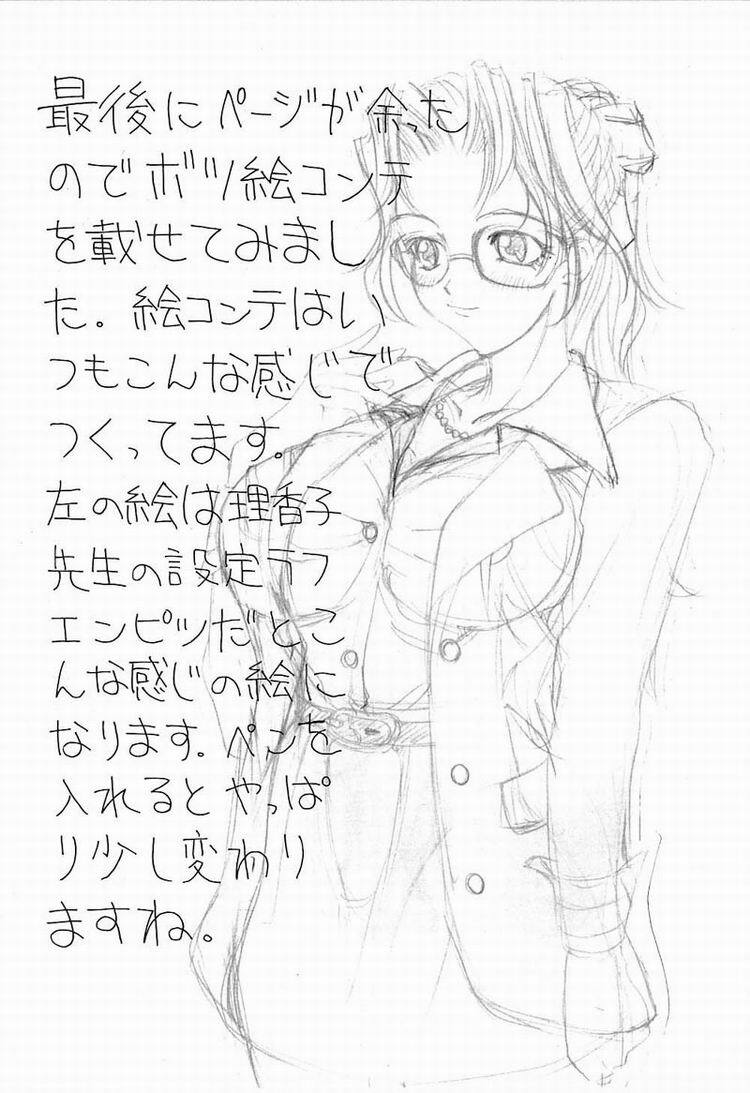 最後にページが余った
のでボツ絵コンテ
を載せてみまし
た。絵コンテはい
つもこんな感じで
つくってます。
左の絵は理香子
先生の設定ラフ
エンピツだとこ
んな感じの絵に
なります。ペンを
入れるとやっぱ
り少し変わり
ますね。